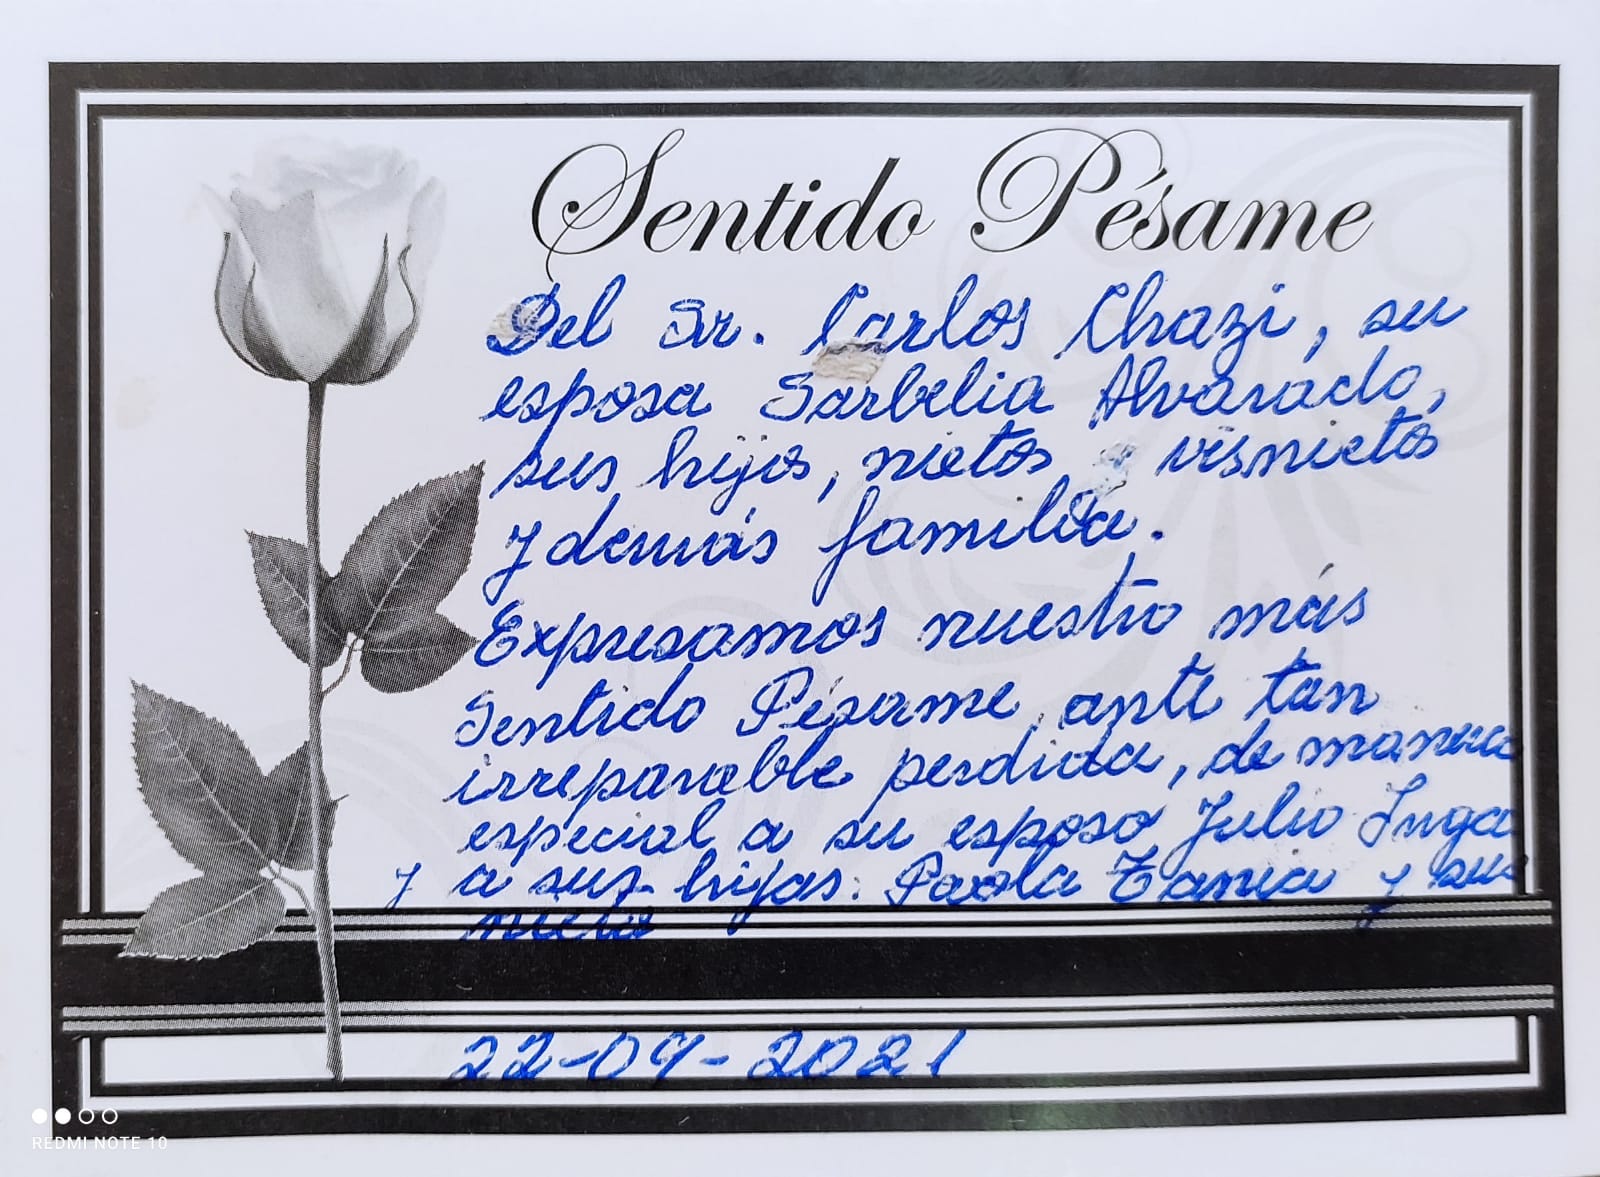 Sentido Pésame
Del Sr. Carlos Chazi, su
esposa Sarbelia Alvarado,
sus hijos, nietos, visnietos
y demás familia.
Expresamos nuestro más
Sentido Pésame ante tan
irreparable perdida, de manera
especial a su esposo Julio Inga
y a sus hijas: Paola Tania y sus
nieto
22-09-2021
REDMI NOTE 10